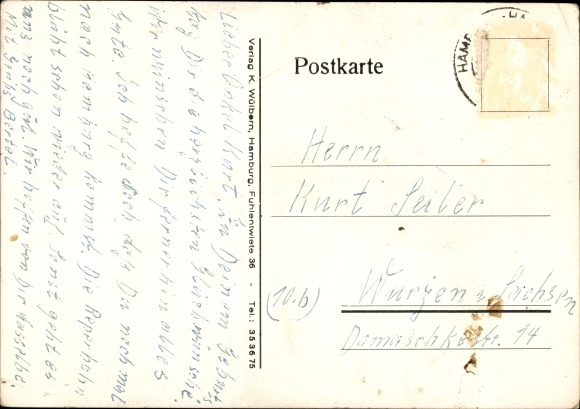 Lieber Onkel Kurt, zu Deinem Geburts
tag Dir die herzlichsten Glückwünsche.
Wir wünschen Dir fernerhin alles
Gute. Ich hoffe doch, daß Du noch mal
nach Hamburg kommst. Die Reperbahn
blüht schon wieder auf. Sonst geht es
uns noch gut. Wir hoffen von Dir dasselbe.
Mit Gruß
Verlag K. Wülbern, Hamburg, Fuhlentwiete 36 - Tel.: 35 36 75
HAMB
HA
Postkarte
Herrn
Kurt Seiler
(10b) Wurzen i. Sachsen
Damaschkestr. 14